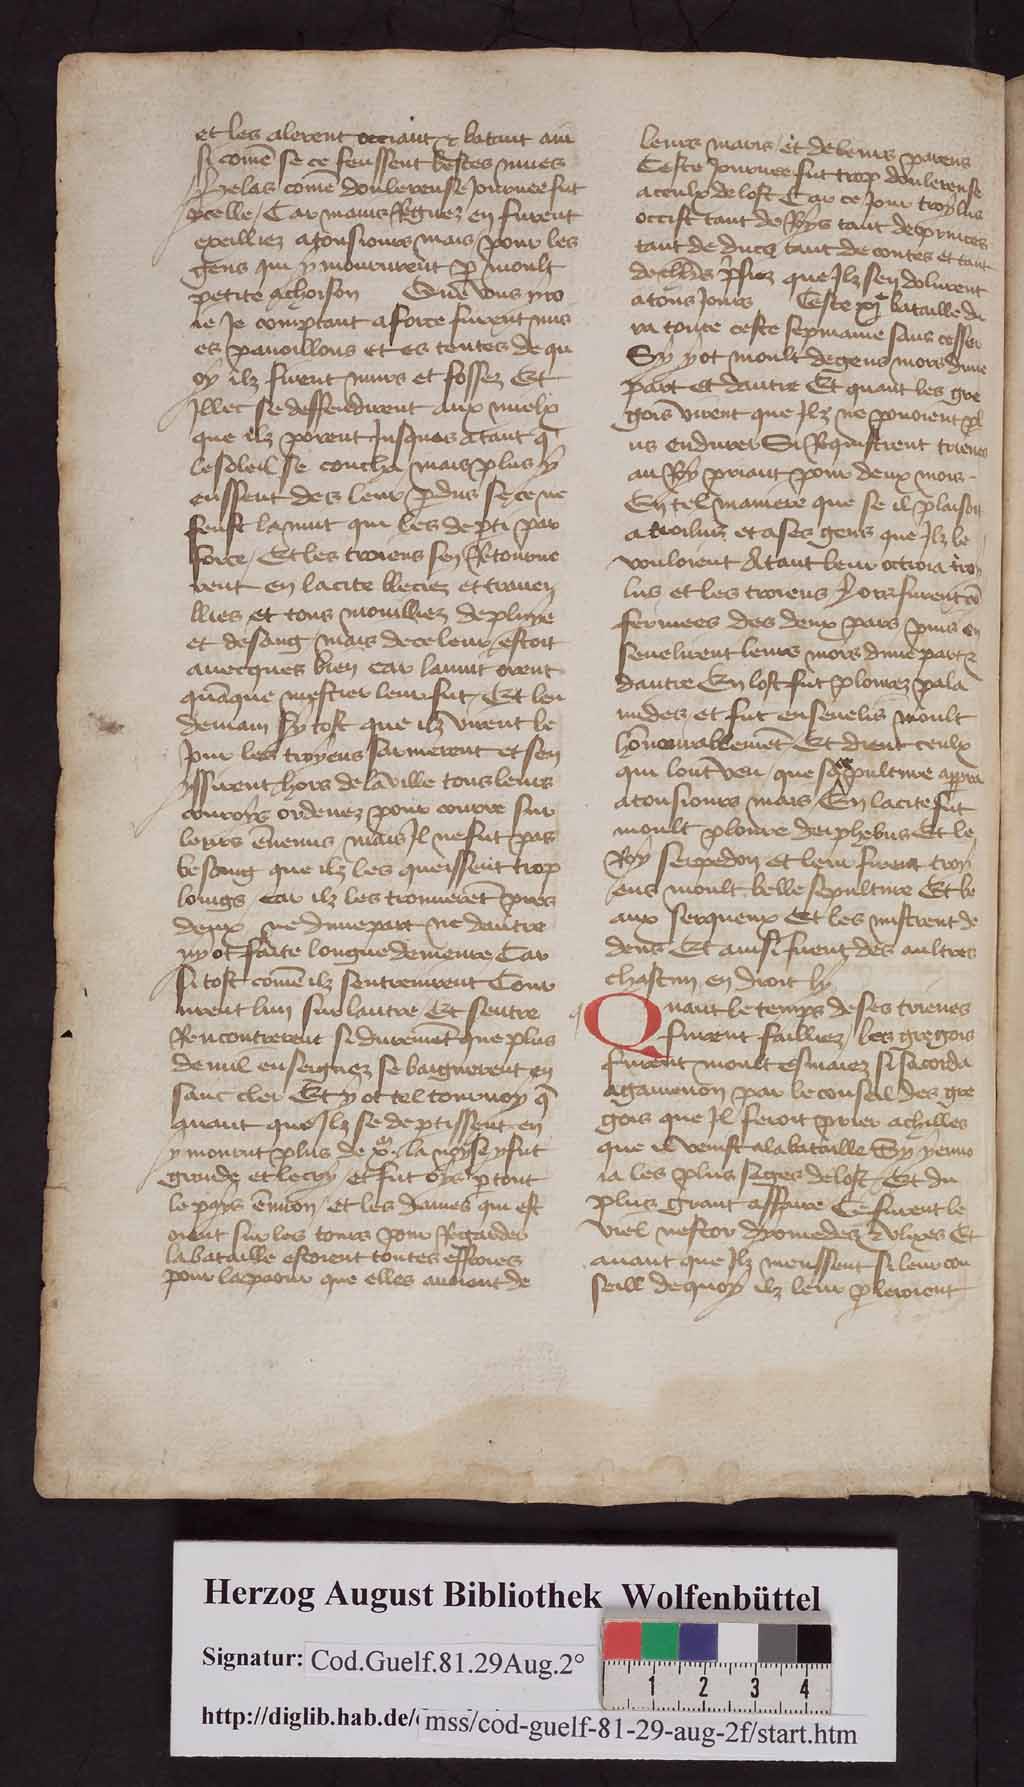 et les alerent occiant & batant ain
si comē se ce feussent bestes mues
Helas comē douleureuse Journee fut
celle / Car mains Regnez en furent
exeilliez atousiours mais pour les
gens qui y moururent p moult
petite achoison Que vous yro
ie Je comptant aforce furent mis
es pauoillons et es tentes de qu
oy ilz firent murs et fossez Et
Illec se deffendirent aux mielx
que ilz porent Jusques atant q̄
le soleil se coucha mais plus y
eussent des leur pdus se ce ne
feust la nuit qui les depti par
force / Et les troiens sen Retourne
rent en lacite bleciez et trauei
lliez et tous mouilliez de pluye
et de sang mais de ce leur estoit
auecques bien car lanuit orent
quāque mestier leur fut / Et len
demain sy tost que ilz virent le
Jour les troyens sarmerent et sen
yssirent hors de la ville tous leurs
conroys ordenez pour courre sur
leurs ēnemis mais Il ne fut pas
besoing que ilz les queissent trop
loings / car ilz les trouuerēt pres
deux ne dune part ne dautre
ny ot faite longue demeure Car
si tost comē ilz sentreuirent Cour
urent lun sur lautre Et sentre
Rencontrerent si duremēt que plus
de mil enseignez se baignerent en
sanc cler Et y ot tel tournoy q̄
auant que Ilz se deptissent en
y mourut plus de xᵐ. la noyse y fut
grande et le cry et fut oys ptout
le pays ēuiron / et les dames qui est
oient sur les tours pour Regarder
la bataille estoient toutes
pour la paour que elles auoient de
leurs maris / et de leurs parens
Ceste Journee fut trop douleureuse
a ceulx de lost Car ce Jour troylus
occist tant de Roys tant de princes
tant de ducs tant de contes et tant
de que Ilz sen dolurent
atous Jours Ceste xjᵉ bataille du
ra toute ceste sepmaine sans cesser
Sy y ot moult de gens mors dune
part et dautre Et quant les gre
gois virent que Ilz ne pouoient pl
us endurer Si Requistrent trieues
au Roy priant pour deux mois .
En tel maniere que se il plaisoit
a troilus et ases gens que Ilz le
vouloient Atant leur octroia troy
lus et les troiens Lors furent cō
fermees des deux pars puis en
seuelirent leurs mors dune part &
dautre En lost fut plourez pala
mides et fut enseuelis moult
hōnourablemēt Et dient ceulx
qui lont veu / que sa sepulture apparra
atousiours mais En lacite fut
moult ploure deiphebus Et le
Roy serpedon et leur firent troy
ens moult belle sepulture Et be
aux serqueux Et les mistrent de
dens Et ainsi firent des aultres
chascun en droit ly
Quant le temps de ses trieues
furent failliez / les gregois
furent moult esmaiez si sacorda
agamenon par le conseil des gre
gois que Il feroit prier achilles
que il venist ala bataille Sy y enuo
ia les plus sages de lost / Et du
plus grant affaire Ce furent le
viel nestor dyomedes & vlixes Et
auant que Ilz meussent si leur con
seill de quoy ilz leur pleroient
Herzog August Bibliothek Wolfenbüttel
Signatur: Cod.Guelf.81.29Aug.2°
http://diglib.hab.de/mss/cod-guelf-81-29-aug-2f/start.htm
1 2 3 4